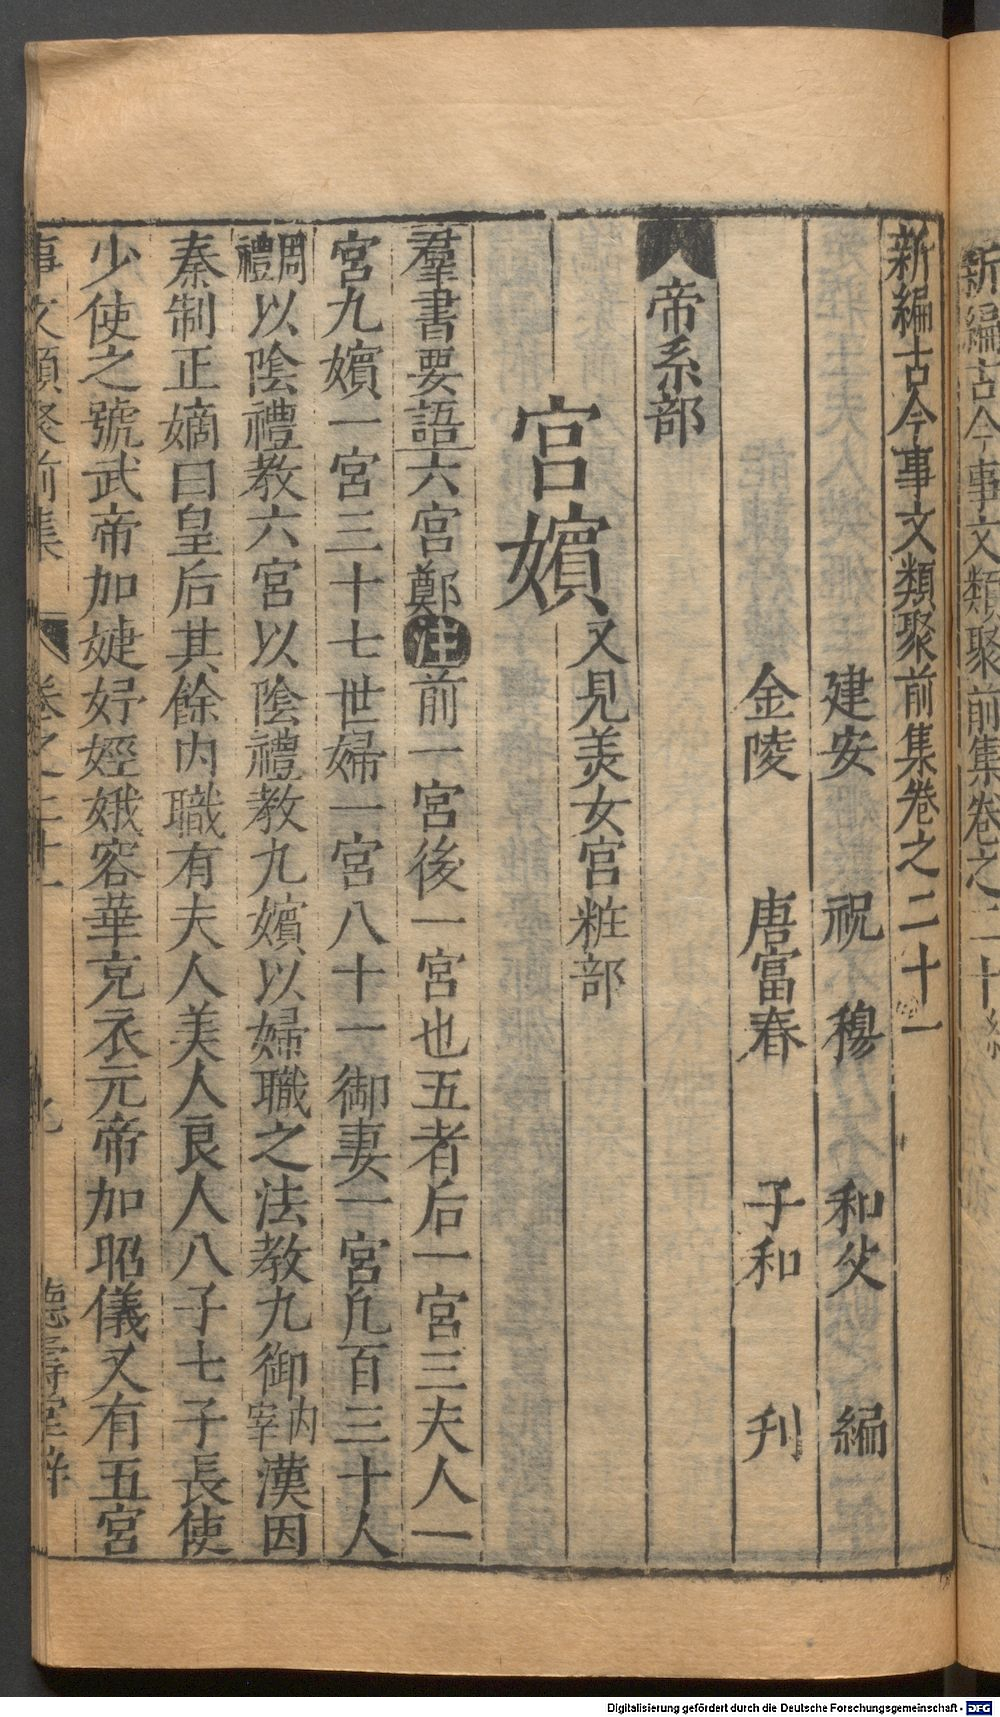 新編古今事文類聚前集卷之二十一
建安 祝 穆 和父 編
金陵 唐富春 子和 刋
帝系部
宮嬪又見美女宮粧部
羣書要語六宮鄭注前一宮後一宮也五者后一宮三夫人一
宮九嬪一宮三十七世婦一宮八十一御妻一宮凢百三十人
周禮以陰禮教六宮以陰禮教九嬪以婦職之法教九御内宰漢因
秦制正嫡曰皇后其餘内職有夫人美人良人八子七子長使
少使之號武帝加婕妤娙娥容華充衣元帝加昭儀又有五宮
事文類聚前集 卷之二十一 德壽堂梓
新編古今事文類聚前集卷之二十
Digitalisierung gefördert durch die Deutsche Forschungsgemeinschaft - DFG